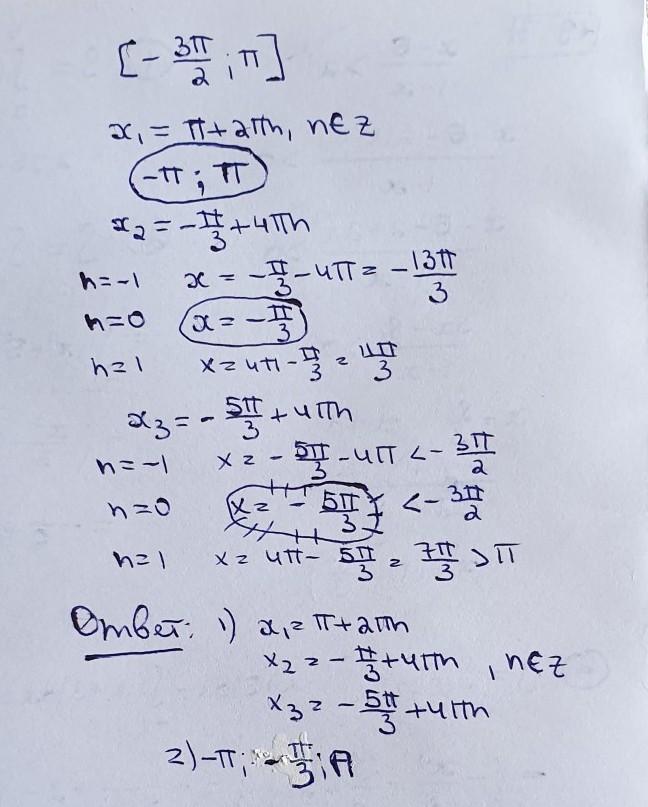 [-3π/2; π]
x₁ = π+2πn, n∈Z
-π; π
x₂ = -π/3+4πn
n=-1 x = -π/3-4π = -13π/3
n=0 x = -π/3
n=1 x = 4π-π/3 = 11π/3
x₃ = -5π/3+4πn
n=-1 x = -5π/3-4π < -3π/2
n=0 x = -5π/3 < -3π/2
n=1 x = 4π-5π/3 = 7π/3 > π
Ответ: 1) x₁ = π+2πn
x₂ = -π/3+4πn, n∈Z
x₃ = -5π/3+4πn
2) -π; -π/3; π